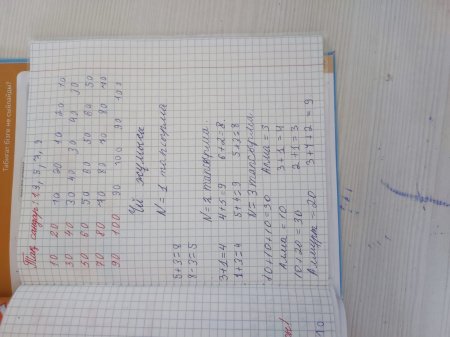 Табиғат бізге не сыйлайды?
Тақ сандар: 1, 3, 5, 7, 9
10 20 10 20 10 20 10
30 40 30 40 30 40 30
50 60 50 60 50 60 50
70 80 70 80 70 80 70
90 100 90 100 90 100
Үй жұмысы
N=1 тапсырма
5+3=8
8-3=5
N=2 тапсырма.
3+1=4 4+5=9 6+2=8
1+3=4 5+4=9 5+2=8
N=3 тапсырма.
10+10+10=30 Алма=3
Алма=10 3+1=4
10+20=30 2+1=3
Алмұрт=20 3+4+2=9